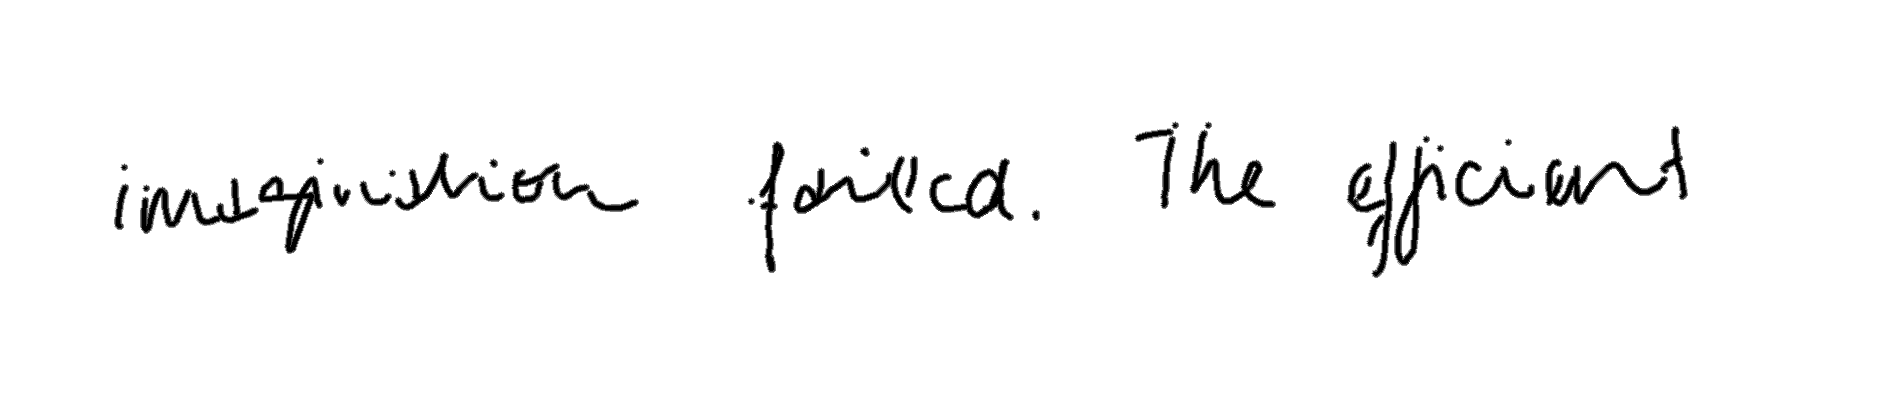 imagination failed. The efficient